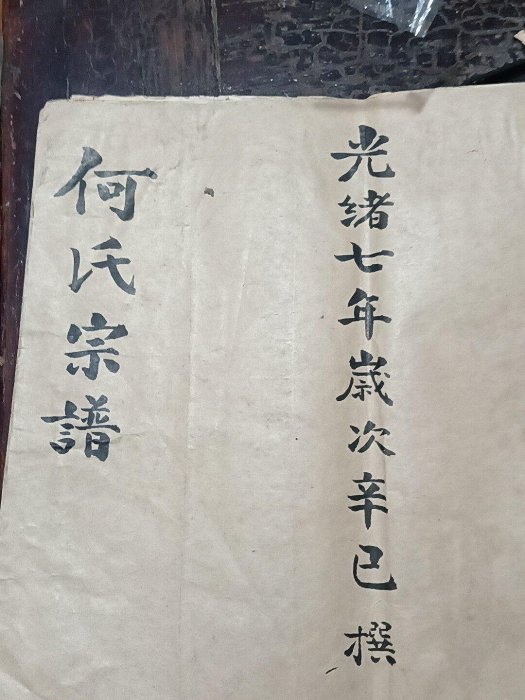 光緒七年歲次辛巳 撰
何氏宗譜